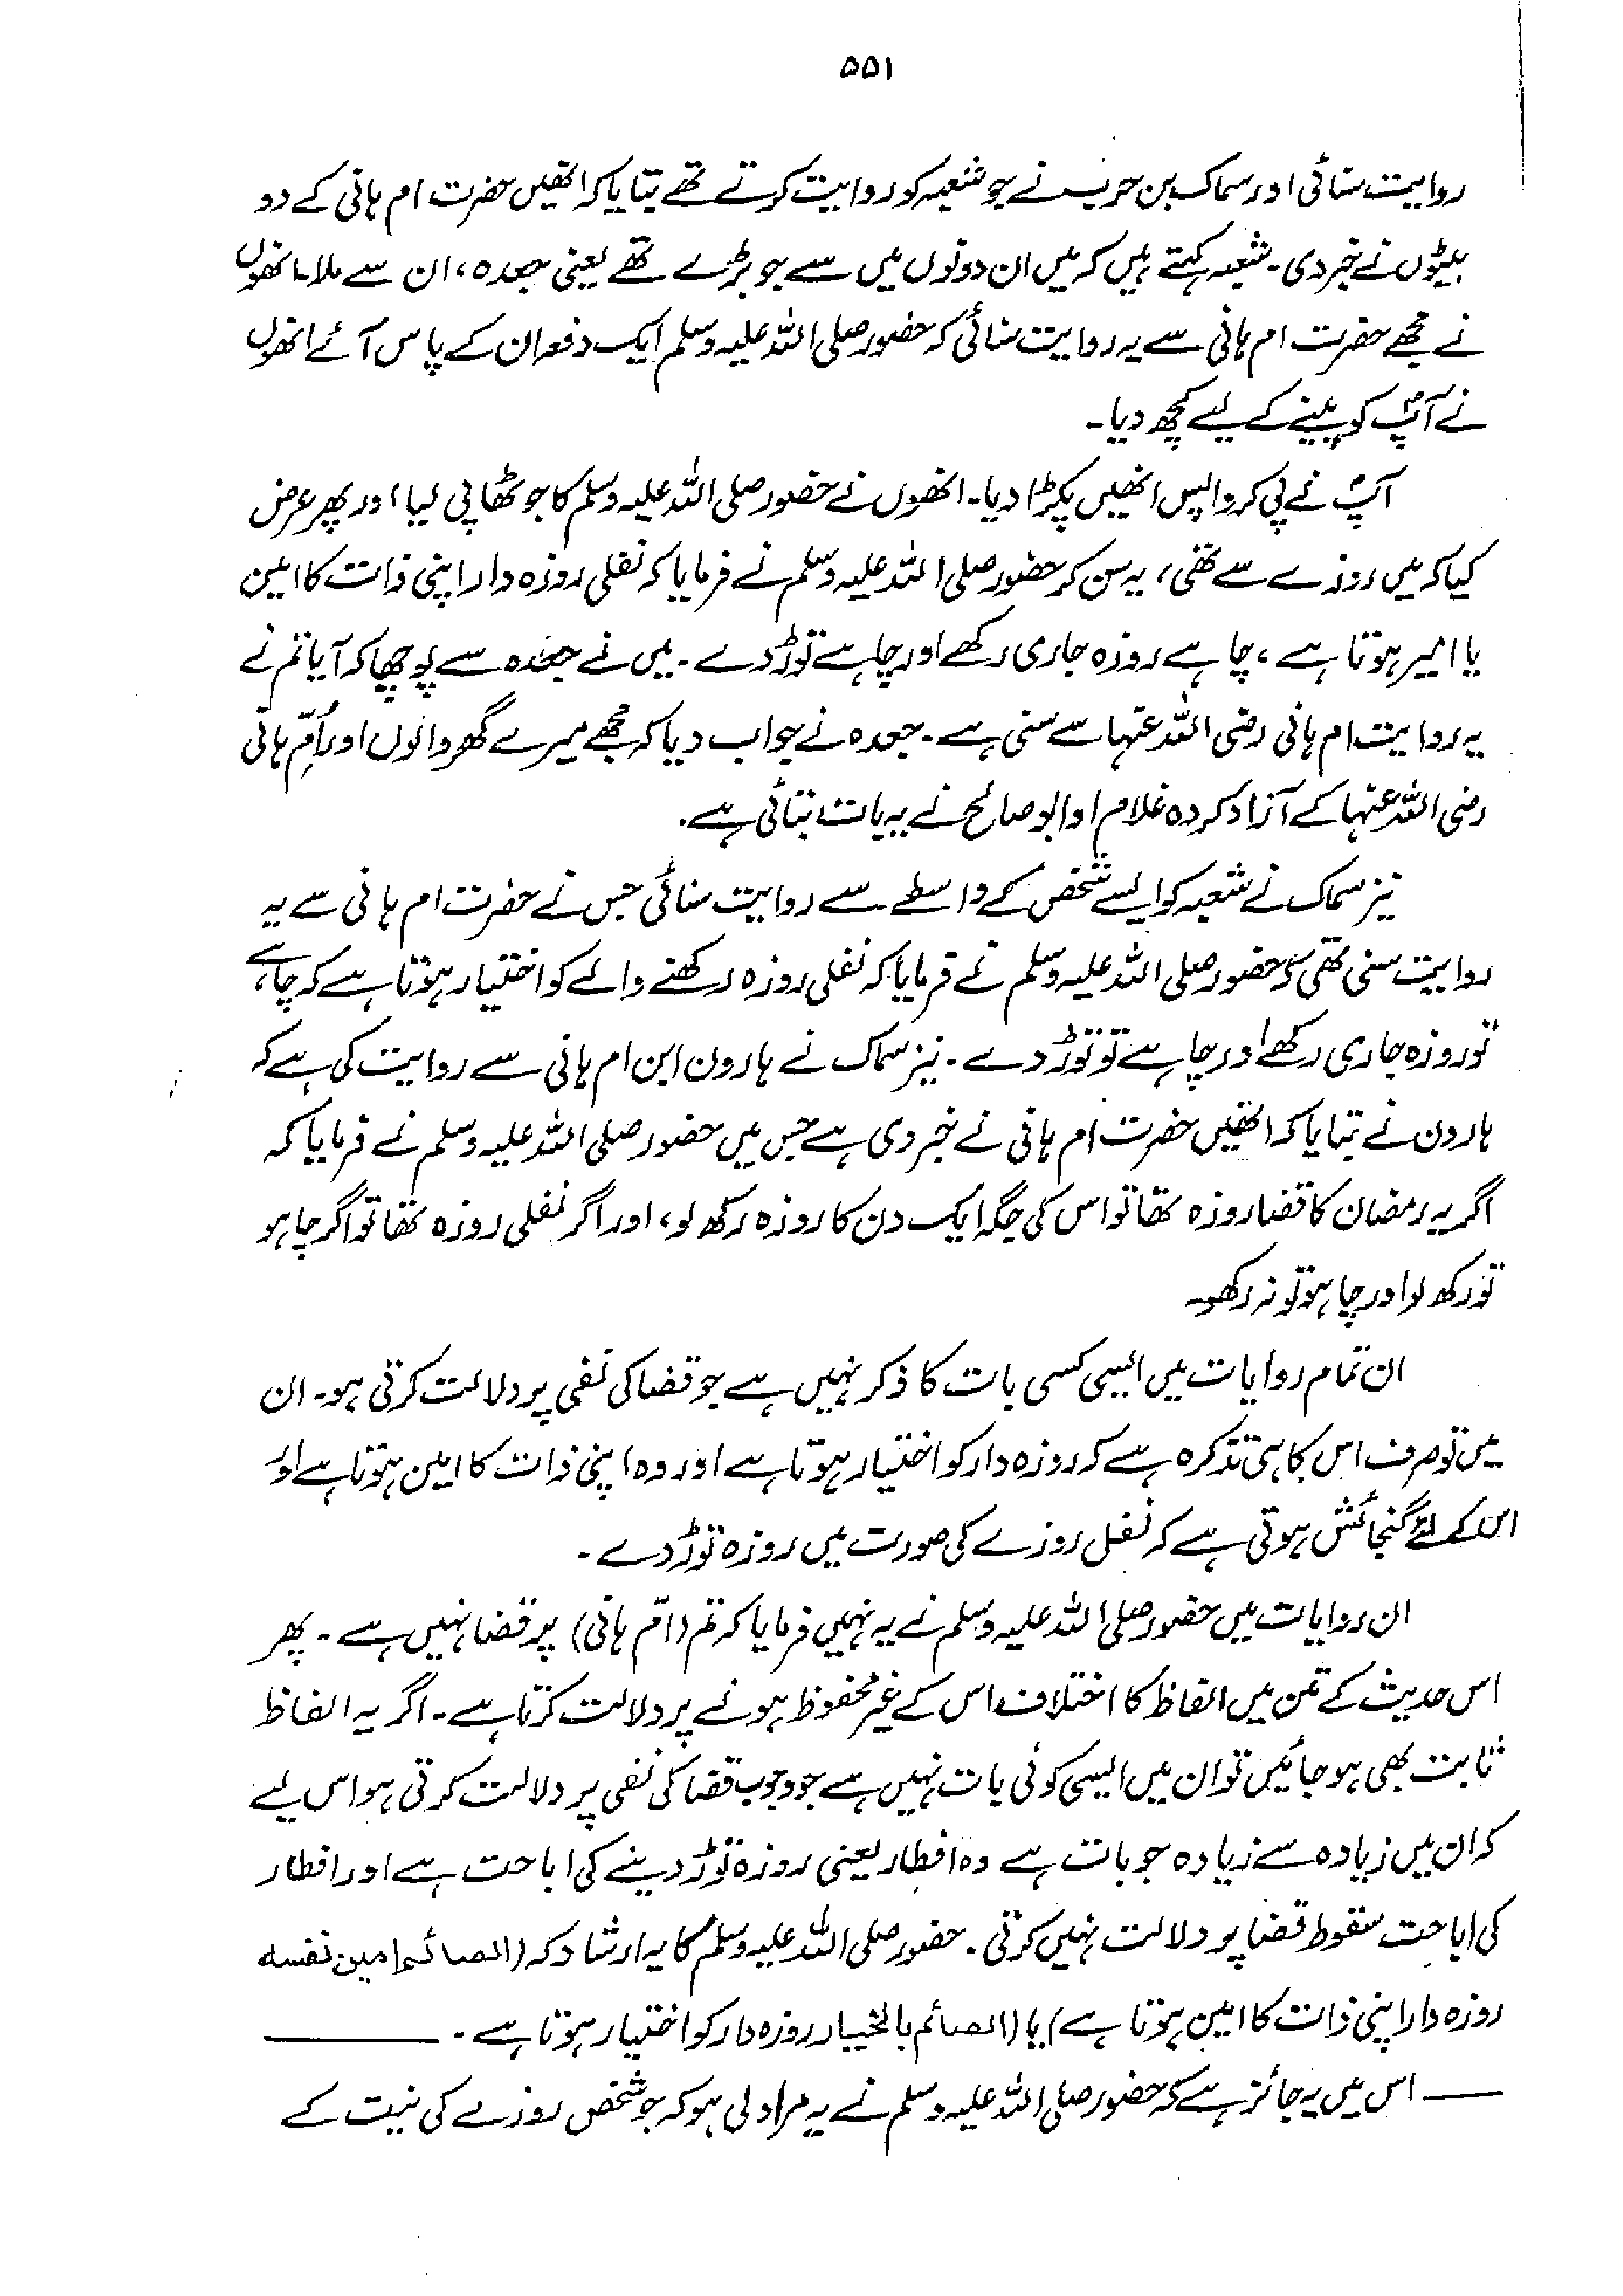 ۵۵۱
روایت سنائی اور سماک بن حرب نے جو شعبہ کو روایت کرتے تھے بتایا کہ انھیں حضرت ام ہانی کے دو
بیٹوں نے خبر دی۔ شعبہ کہتے ہیں کہ میں ان دونوں میں سے جو بڑے تھے یعنی جعدہ، ان سے ملا۔ انھوں
نے مجھے حضرت ام ہانی سے یہ روایت سنائی کہ حضور صلی اللہ علیہ وسلم ایک دفعہ ان کے پاس آئے انھوں
نے آپؐ کو پینے کے لیے کچھ دیا۔
آپؐ نے پی کر واپس انھیں پکڑا دیا۔ انھوں نے حضور صلی اللہ علیہ وسلم کا جوٹھا پی لیا اور پھر عرض
کیا کہ میں روزے سے تھی، یہ سن کر حضور صلی اللہ علیہ وسلم نے فرمایا کہ نفلی روزہ دار اپنی ذات کا امین
یا امیر ہوتا ہے، چاہے روزہ جاری رکھے اور چاہے توڑ دے۔ میں نے جعدہ سے پوچھا کہ آیا تم نے
یہ روایت ام ہانی رضی اللہ عنہا سے سنی ہے۔ جعدہ نے جواب دیا کہ مجھے میرے گھر والوں اور اُمِّ ہانی
رضی اللہ عنہا کے آزاد کردہ غلام اوابو صالح نے یہ بات بتائی ہے۔
نیز سماک نے شعبہ کو ایسے شخص کے واسطے سے روایت سنائی جس نے حضرت ام ہانی سے یہ
روایت سنی تھی کہ حضور صلی اللہ علیہ وسلم نے فرمایا کہ نفلی روزہ رکھنے والے کو اختیار ہوتا ہے کہ چاہے
تو روزہ جاری رکھے اور چاہے تو توڑ دے۔ نیز سماک نے ہارون ابن ام ہانی سے روایت کی ہے کہ
ہارون نے بتایا کہ انھیں حضرت ام ہانی نے خبر دی ہے جس میں حضور صلی اللہ علیہ وسلم نے فرمایا کہ
اگر یہ رمضان کا قضا روزہ تھا تو اس کی جگہ ایک دن کا روزہ رکھ لو، اور اگر نفلی روزہ تھا تو اگر چاہو
تو رکھ لو اور چاہو تو نہ رکھو۔
ان تمام روایات میں ایسی کسی بات کا ذکر نہیں ہے جو قضا کی نفی پر دلالت کرتی ہو۔ ان
میں تو صرف اس کا ہی تذکرہ ہے کہ روزہ دار کو اختیار ہوتا ہے اور وہ اپنی ذات کا امین ہوتا ہے اور
اس کے لئے گنجائش ہوتی ہے کہ نفل روزے کی صورت میں روزہ توڑ دے۔
ان روایات میں حضور صلی اللہ علیہ وسلم نے یہ نہیں فرمایا کہ تم (امّ ہانی) پر قضا نہیں ہے۔ پھر
اس حدیث کے متن میں الفاظ کا اختلاف اس کے غیر محفوظ ہونے پر دلالت کرتا ہے۔ اگر یہ الفاظ
ثابت بھی ہو جائیں تو ان میں ایسی کوئی بات نہیں ہے جو وجوب قضا کی نفی پر دلالت کرتی ہو اس لیے
کہ ان میں زیادہ سے زیادہ جو بات ہے وہ افطار یعنی روزہ توڑ دینے کی اباحت ہے اور افطار
کی اباحت سقوط قضا پر دلالت نہیں کرتی۔ حضور صلی اللہ علیہ وسلم کا یہ ارشاد کہ (الصائم امین نفسه
روزہ دار اپنی ذات کا امین ہوتا ہے) یا (الصائم بالخیار روزہ دار کو اختیار ہوتا ہے۔ ———
—— اس میں یہ جائز ہے کہ حضور صلی اللہ علیہ وسلم نے یہ مراد لی ہو کہ جو شخص روزے کی نیت کے